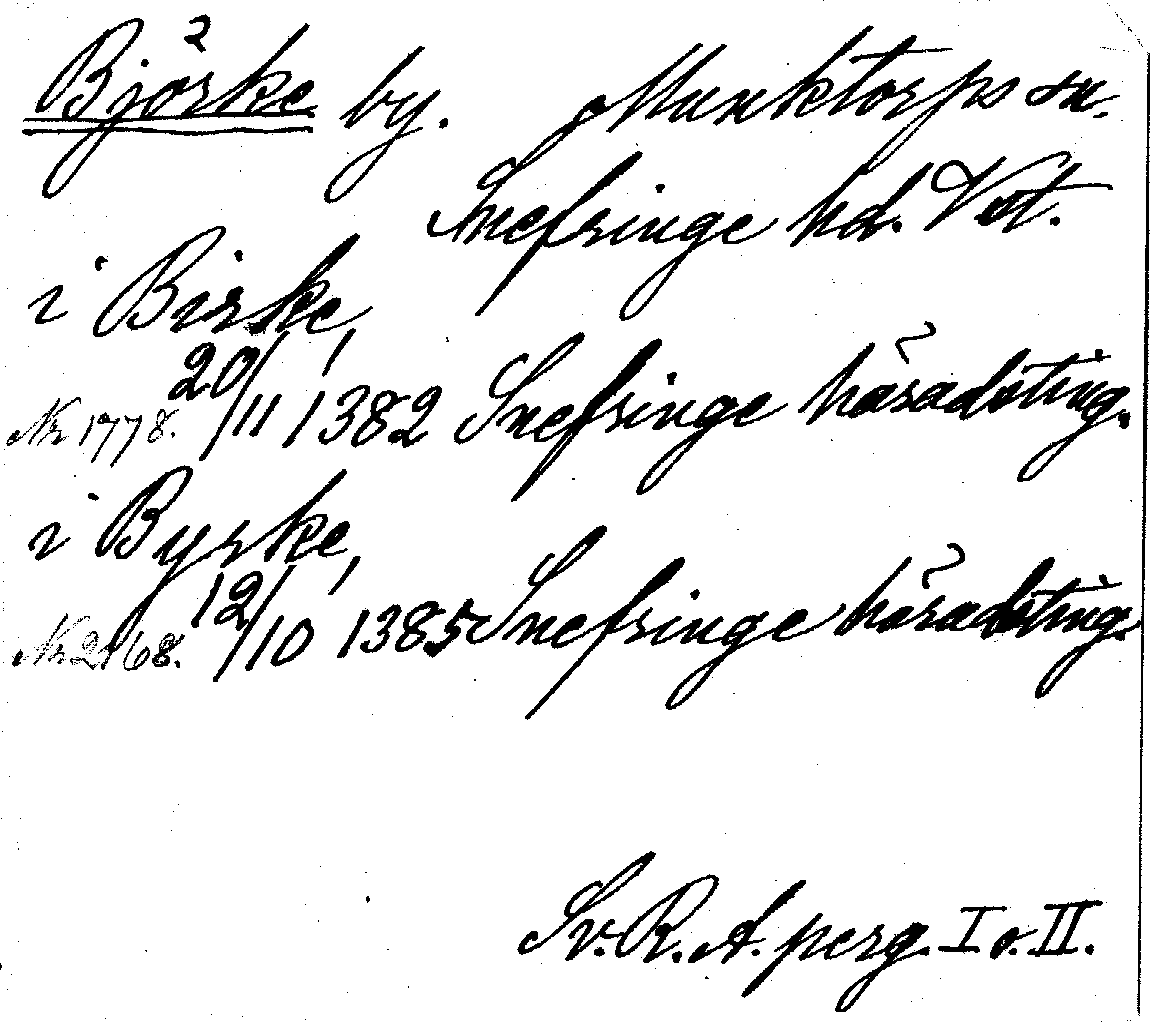 Björke by. Munktorps sn.
Snefringe hd. Vst.
i Birke,
Nr 1778. 20/11 1382 Snefringe häradsting.
i Byrke,
Nr 2168. 12/10 1385 Snefringe häradsting.
Sv. R. A. perg. I o. II.